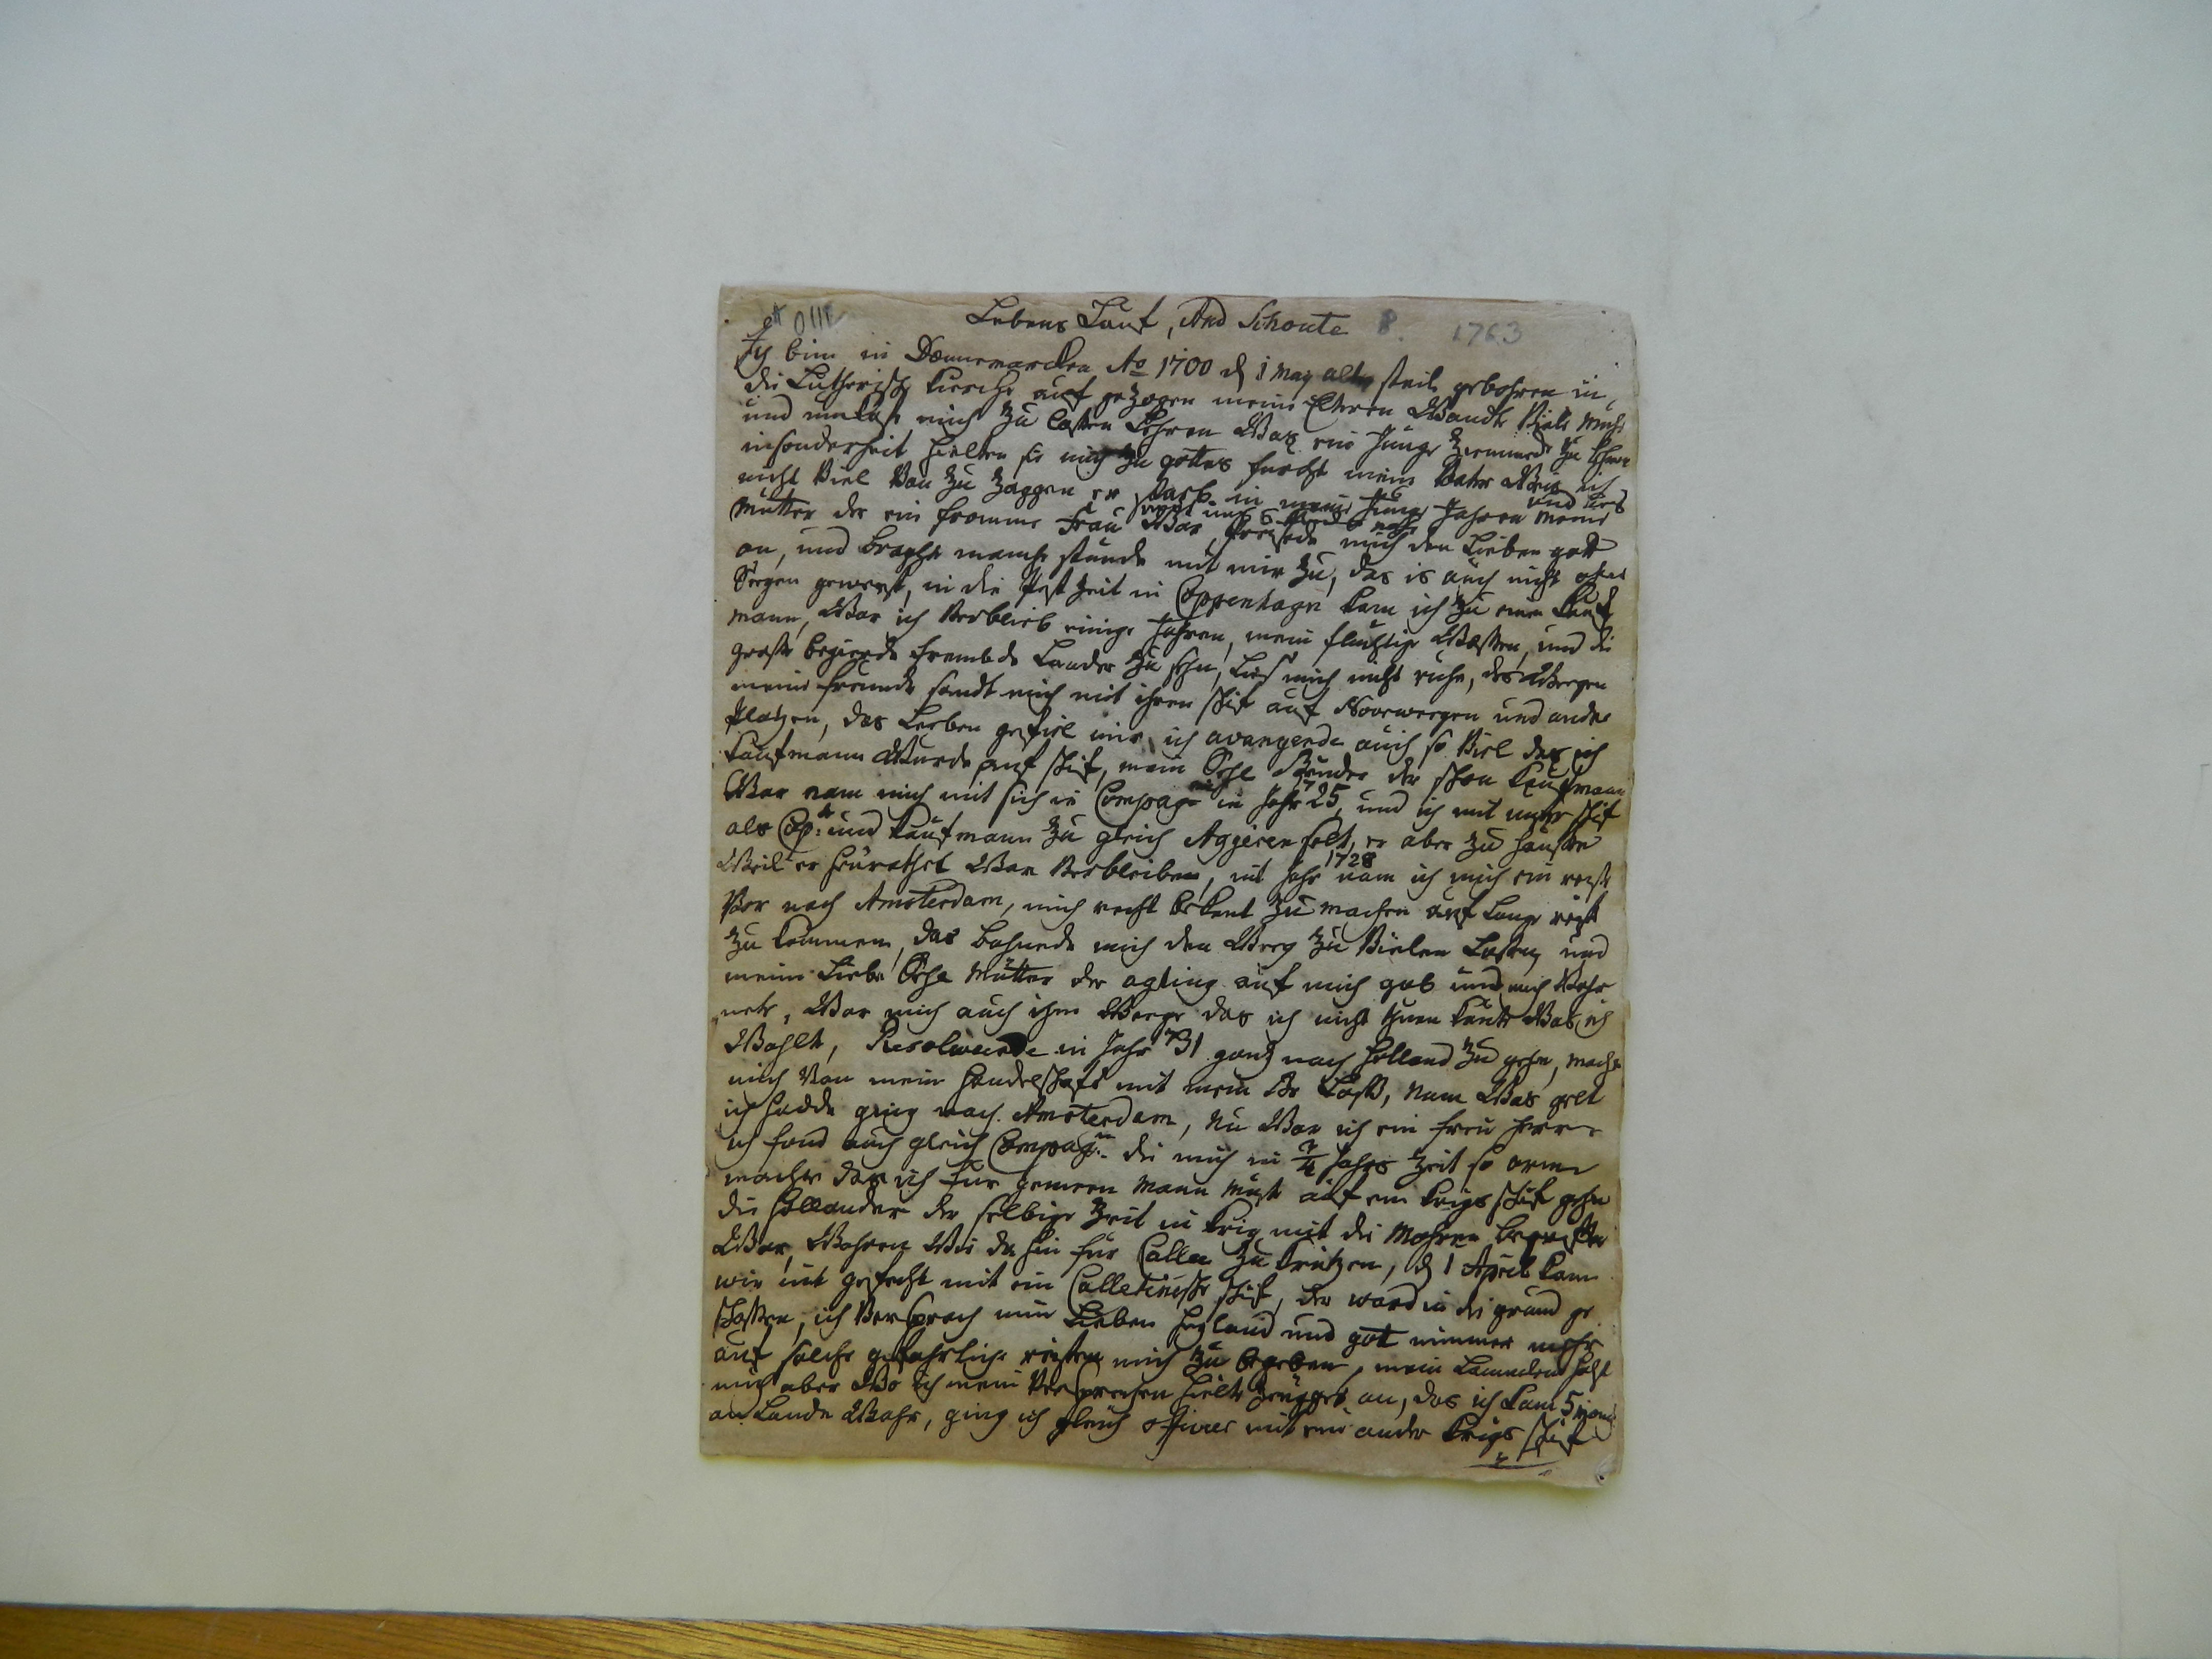 Lebens Lauf, And Schoute 8. 1763
Ich bin in Dænnemarcken Ao 1700 d 1 May alten steil gebohren in
die Lutherische Kirche auf gezogen meine Eltern Wandte Viele Mühe
und unkost mich zu lassen Lehren Was ein Junge zu
insonderheit hielten sie mich zu gottes furcht mein Vater Weis ich
nicht Viel Von zu zaggen er starb in meine Junge Jahren meine
Mutter der ein fromme Frau War mich den Lieben gott
an, und bragte manche stunde mit mir zu, das is auch nicht ohne
Seegen gewest, in die Pest Zeit in Coppenhagen kam ich zu einen Kauf
mann, War ich Verblieb einige Jahren, mein fluchtige Wessen, und die
groste begierde frembde Lander zu sehn, Lies mich nicht ruhe, deswegen
meine freunde sandt mich mit ihren schif auf Noorweegen und andre
Platzen, das Leeben gefiel mir, ich avangerde auch so Viel das ich
Kaufmann Wurde auf schif, mein Bruder der schon Kaufmann
War nam mich mit sich in Compag in Jahr 1725, und ich mit unser schif
als Cap: und Kaufmann zu gleich Aggieren solt, er aber zu hausse
Weil er heurathet War Verbleiben, int Jahr 1728 nam ich mich ein reise
Vor nach Amsterdam, mich recht bekent zu machen auf Lange reise
zu kommen, das bahnede mich den Weeg zu Vielen Lasten, und
meine Liebe Mutter der agting auf mich gab und mich
, War mich auch ihm Weege das ich nicht thuen kunte Was ich
Wohlte, Resolweerde in Jahr 1731 gantz nach Holland zu gehn, machte
mich Von mein Handelschaft mit mein Br Loss, Nam Was gelt
ich hadde ging nach Amsterdam, Nu War ich ein freie Herr
ich fand auch gleich Compag: die mich in 3/4 Jahrs Zeit so arm
machte das ich fur gemeen Mann must auf ein Krigs schif gehn
die Hollander der selbige Zeit in Krig mit die Mohren
War, Wahren Wir da hin fur Callee zu Kruitzen, d 1 April kam
wir int gefecht mit ein Calletinesse schif, der ward in die grund ge
schossen, ich Versprach mein Lieben Heyland und gott nimmer mehr
auf solche gefahrliche reissen mich zu begeben, mein
mich aber Wo ich mein Versprechen hielt an, das ich kam 5
an Lande Wahr, ging ich gleich officier mit ein ander Krigs schif